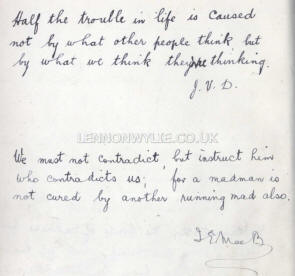 Half the trouble in life is caused
not by what other people think, but
by what we think they're thinking.
J. V. D.
LENNONWYLIE.CO.UK
We must not contradict, but instruct him
who contradicts us; for a madman is
not cured by another running mad also.
J E Mac B.